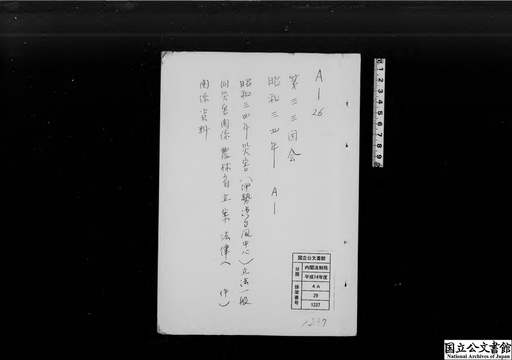 A-26
第三三国会
昭和三四年 A-
昭和三四年災害(伊勢湾台風中心)立法一般
同災害関係農林省立案法律( 件)
関係資料
国立公文書館
分類
内閣法制局
平成14年度
排架番号
4A
29
1237
1237
国立公文書館
National Archives of Japan